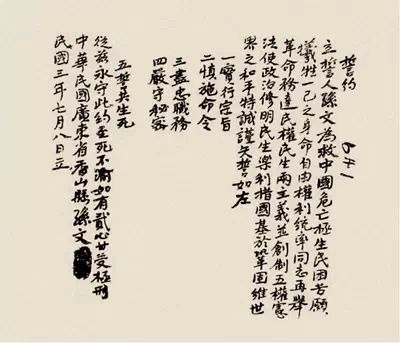 誓約
立誓人孫文為救中國危亡拯生民困苦願
犧牲一己之身命自由權利統率同志再舉
革命務達民權民生兩主義並創制五權憲
法使政治修明民生樂利措國基於鞏固維世
界之和平特誠謹矢誓如左
一實行宗旨
二慎施命令
三盡忠職務
四嚴守秘密
五誓共生死
從茲永守此約至死不渝如有貳心甘受極刑
中華民國廣東省香山縣孫文
民國三年七月八日立